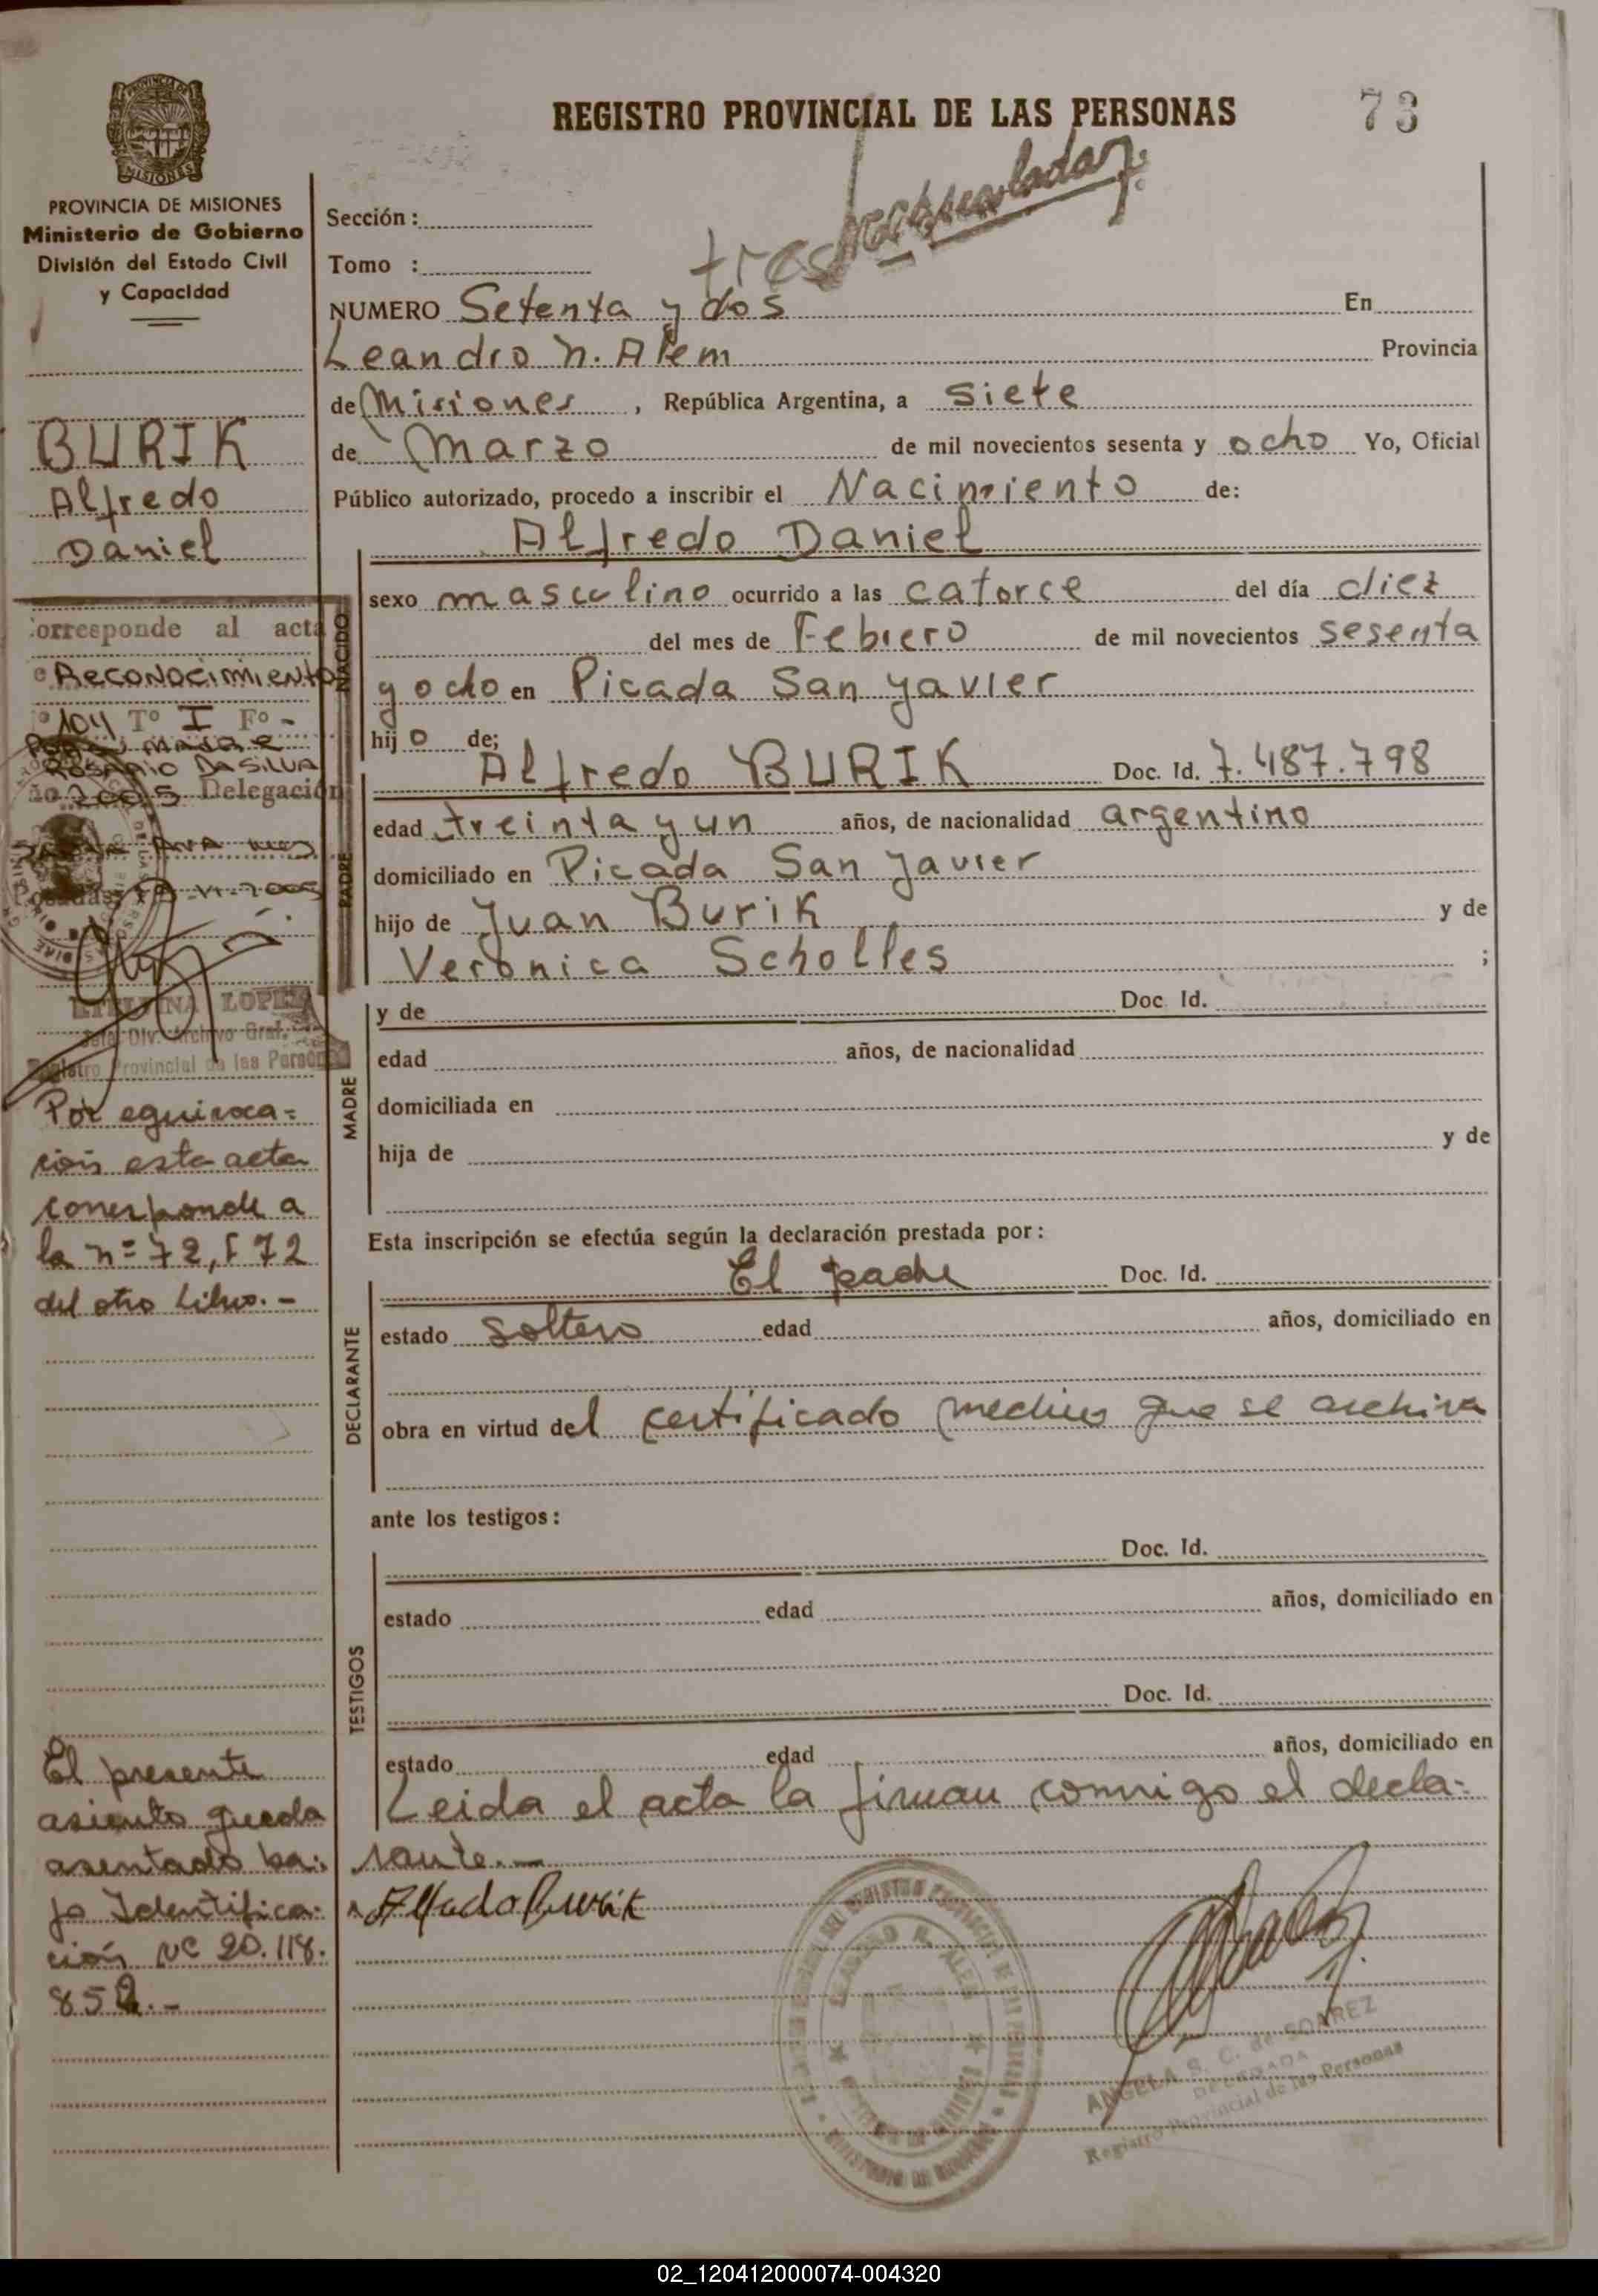 REGISTRO PROVINCIAL DE LAS PERSONAS
73
PROVINCIA DE MISIONES
MISIONES
PROVINCIA DE MISIONES
Ministerio de Gobierno
División del Estado Civil
y Capacidad
BURIK
Alfredo
Daniel
orresponde al acta
e Reconocimiento
º 104 Tº I Fº -
MADRE
ROSARIO DA SILVA
ño 2005 Delegación
VI-2005
LOPEZ
Jefe Div. Archivo Gral.
Registro Provincial de las Personas
Por equivoca=
ción esta acta
corresponde a
la nº 72, F 72
del otro Libro. -
El presente
asiento queda
asentado ba:
jo Identifica:
ción Nº 20.118.
852. -
Sección :
Tomo :
tres
NUMERO Setenta y dos En
Leandro N. Alem Provincia
de Misiones , República Argentina, a siete
de Marzo de mil novecientos sesenta y ocho Yo, Oficial
Público autorizado, procedo a inscribir el Nacimiento de:
Alfredo Daniel
NACIDO
sexo masculino ocurrido a las catorce del día diez
del mes de Febrero de mil novecientos sesenta
y ocho en Picada San Yavier
hij o de;
PADRE
Alfredo BURIK Doc. Id. 7.487.798
edad treinta y un años, de nacionalidad argentino
domiciliado en Picada San Javier
hijo de Juan Burik y de
Veronica Scholles ;
MADRE
y de Doc. Id.
edad años, de nacionalidad
domiciliada en
hija de y de
Esta inscripción se efectúa según la declaración prestada por :
DECLARANTE
El padre Doc. Id.
estado soltero edad años, domiciliado en
obra en virtud del certificado medico que se archiva
ante los testigos :
TESTIGOS
Doc. Id.
estado edad años, domiciliado en
Doc. Id.
estado edad años, domiciliado en
Leida el acta la firman conmigo el decla=
rante. -
Alfredo Burik
ANGELA S. C. de SOAREZ
DELEGADA
Registro Provincial de las Personas
02_120412000074-004320